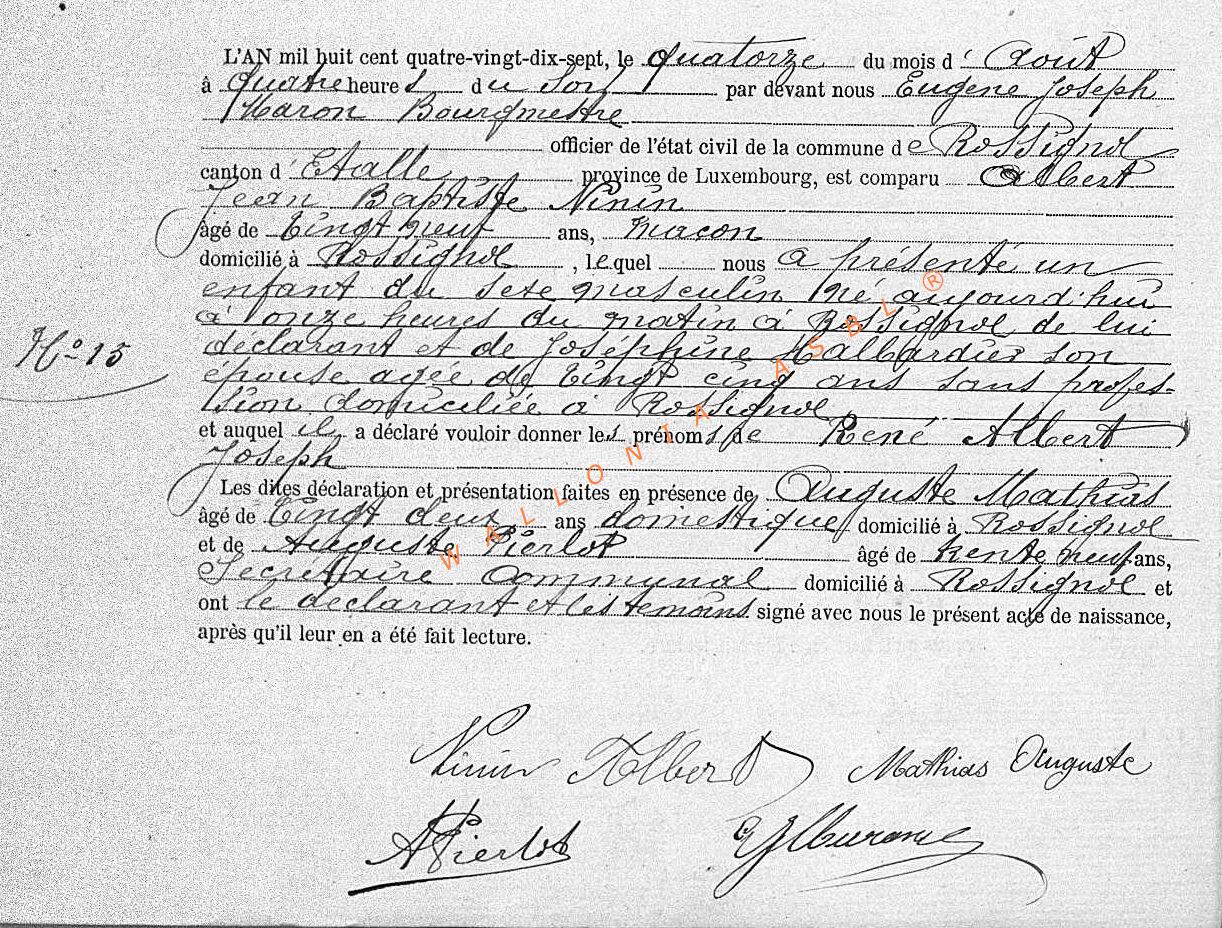 L'AN mil huit cent quatre-vingt-dix-sept, le quatorze du mois d' Août
à quatre heures du soir par devant nous Eugène Joseph
Maron Bourgmestre
officier de l'état civil de la commune de Rossignol
canton d' Etalle province de Luxembourg, est comparu Albert
Jean Baptiste Ninin
âgé de vingt neuf ans, maçon
domicilié à Rossignol, lequel nous a présenté un
enfant du sexe masculin né aujourd'hui
à onze heures du matin à Rossignol de lui
déclarant et de Joséphine Halbardier son
épouse agée de vingt cinq ans sans profes-
sion domiciliée à Rossignol
et auquel il a déclaré vouloir donner les prénoms de René Albert
Joseph
N° 15
Les dites déclaration et présentation faites en présence de Auguste Mathias
âgé de vingt deux ans domestique domicilié à Rossignol
et de Auguste Pierlot âgé de trente neuf ans,
Secrétaire Communal domicilié à Rossignol et
ont le déclarant et les témoins signé avec nous le présent acte de naissance,
après qu'il leur en a été fait lecture.
WALLONIA ASBL ®
Ninin Albert Mathias Auguste
A Pierlot